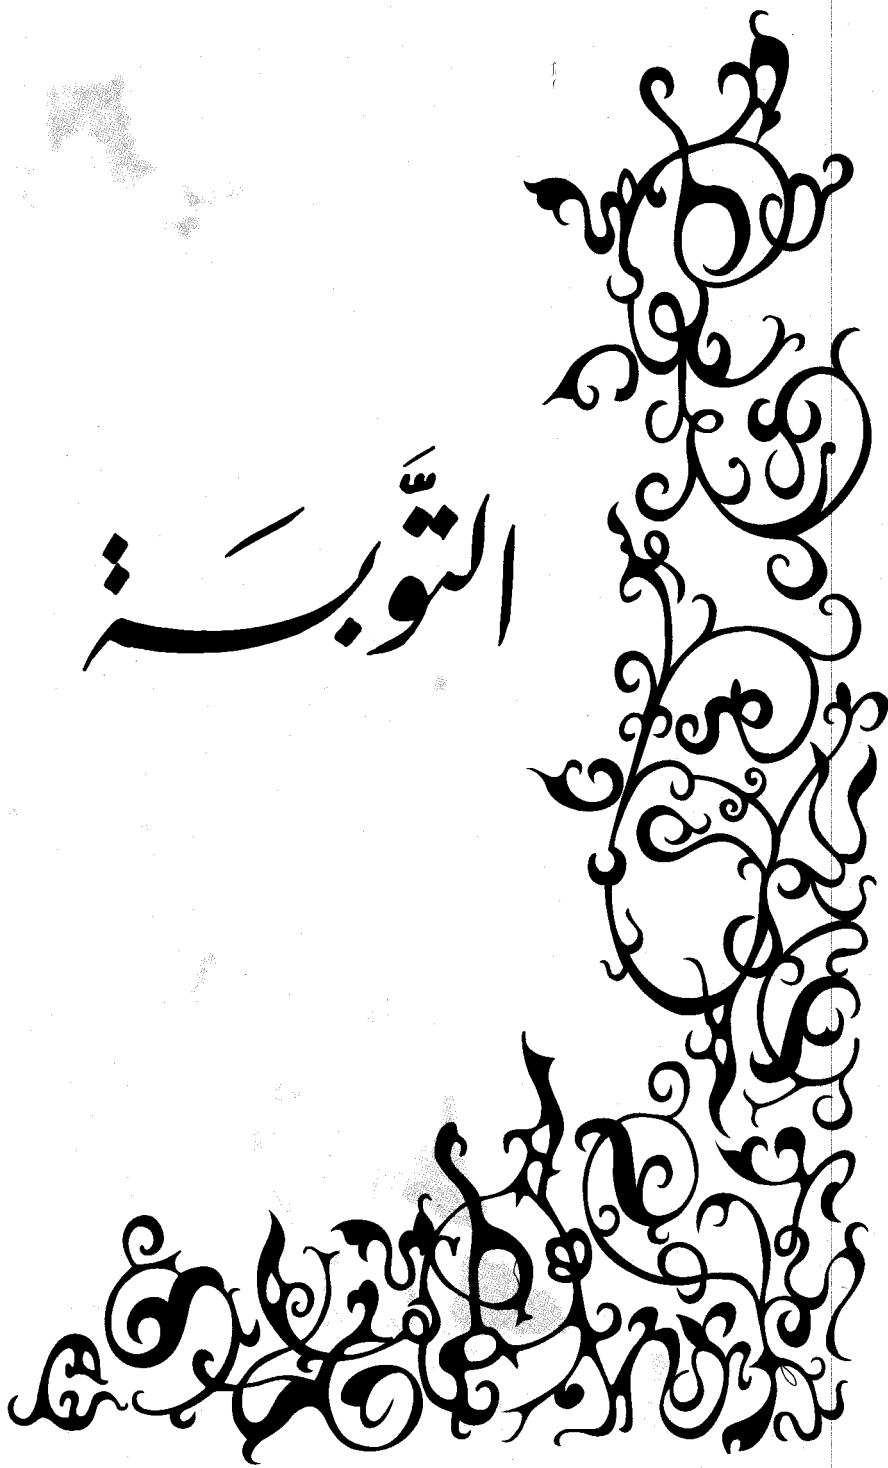 التَّوبَة